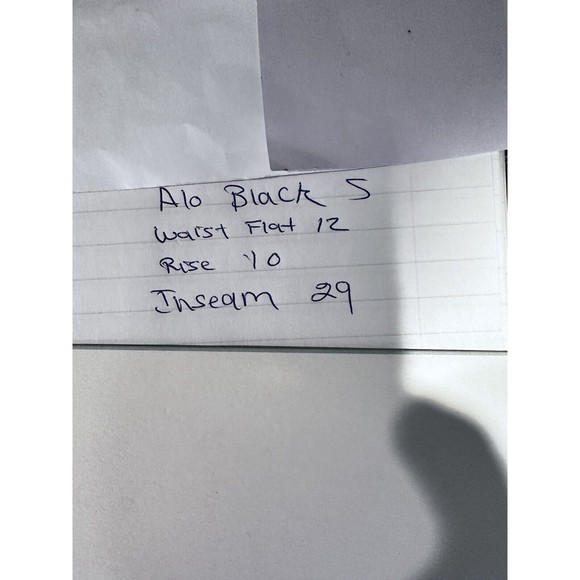 Alo Black S
Waist Flat 12
Rise 10
Inseam 29